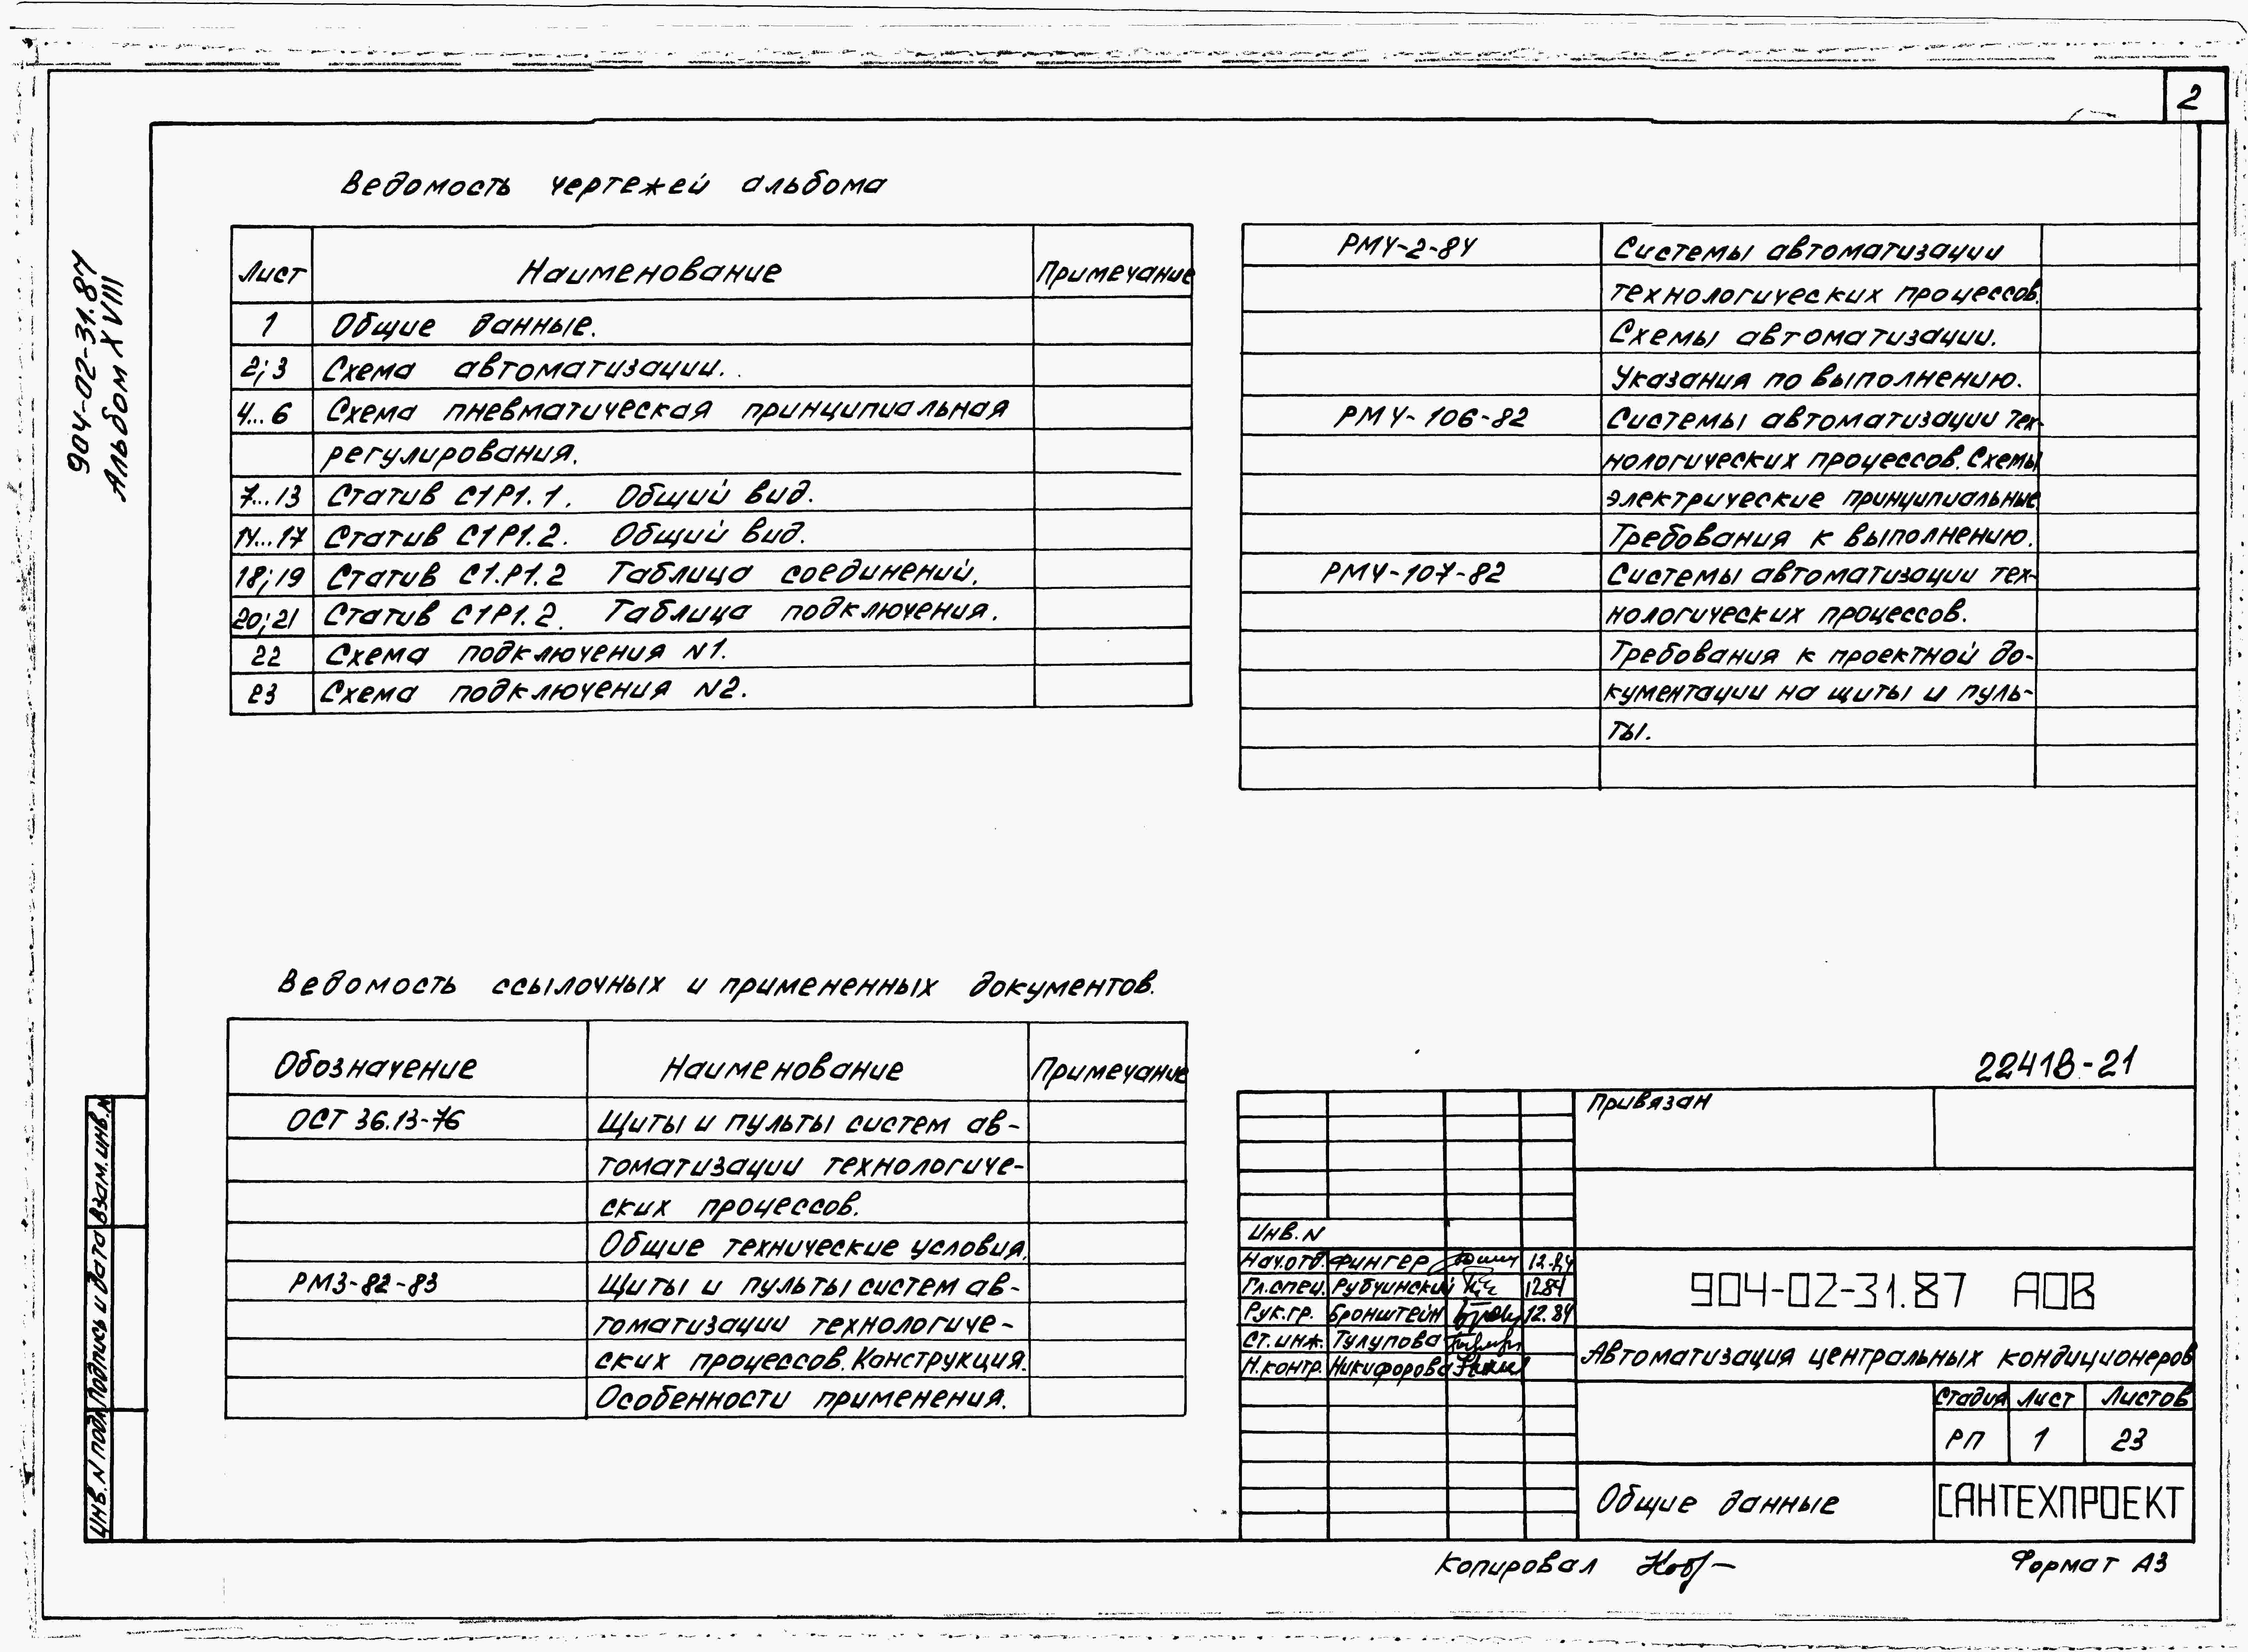 2
904-02-31.87
Альбом XVIII
Ведомость чертежей альбома
Лист Наименование Примечание
1 Общие данные.
2;3 Схема автоматизации.
4...6 Схема пневматическая принципиальная
регулирования.
7...13 Статив С1Р1.1. Общий вид.
14...17 Статив С1Р1.2. Общий вид.
18;19 Статив С1.Р1.2 Таблица соединений.
20;21 Статив С1Р1.2. Таблица подключения.
22 Схема подключения N1.
23 Схема подключения N2.
Ведомость ссылочных и примененных документов.
Обозначение Наименование Примечание
ОСТ 36.13-76 Щиты и пульты систем ав-
томатизации технологиче-
ских процессов.
Общие технические условия.
РМ3-82-83 Щиты и пульты систем ав-
томатизации технологиче-
ских процессов. Конструкция.
Особенности применения.
РМ4-2-84 Системы автоматизации
технологических процессов.
Схемы автоматизации.
Указания по выполнению.
РМ4-106-82 Системы автоматизации тех-
нологических процессов. Схемы
электрические принципиальные.
Требования к выполнению.
РМ4-107-82 Системы автоматизации тех-
нологических процессов.
Требования к проектной до-
кументации на щиты и пуль-
ты.
22418-21
Привязан
Инв. N
Нач.отд. Фингер 12.84
Гл.спец. Рубчинский 12.84
Рук.гр. Бронштейн 12.84
Ст.инж. Тулупова
Н.контр. Никифорова
904-02-31.87 АОВ
Автоматизация центральных кондиционеров
Стадия Лист Листов
РП 1 23
Общие данные
САНТЕХПРОЕКТ
Взам.инв.N
Подпись и дата
Инв. N подл.
Копировал
Формат А3